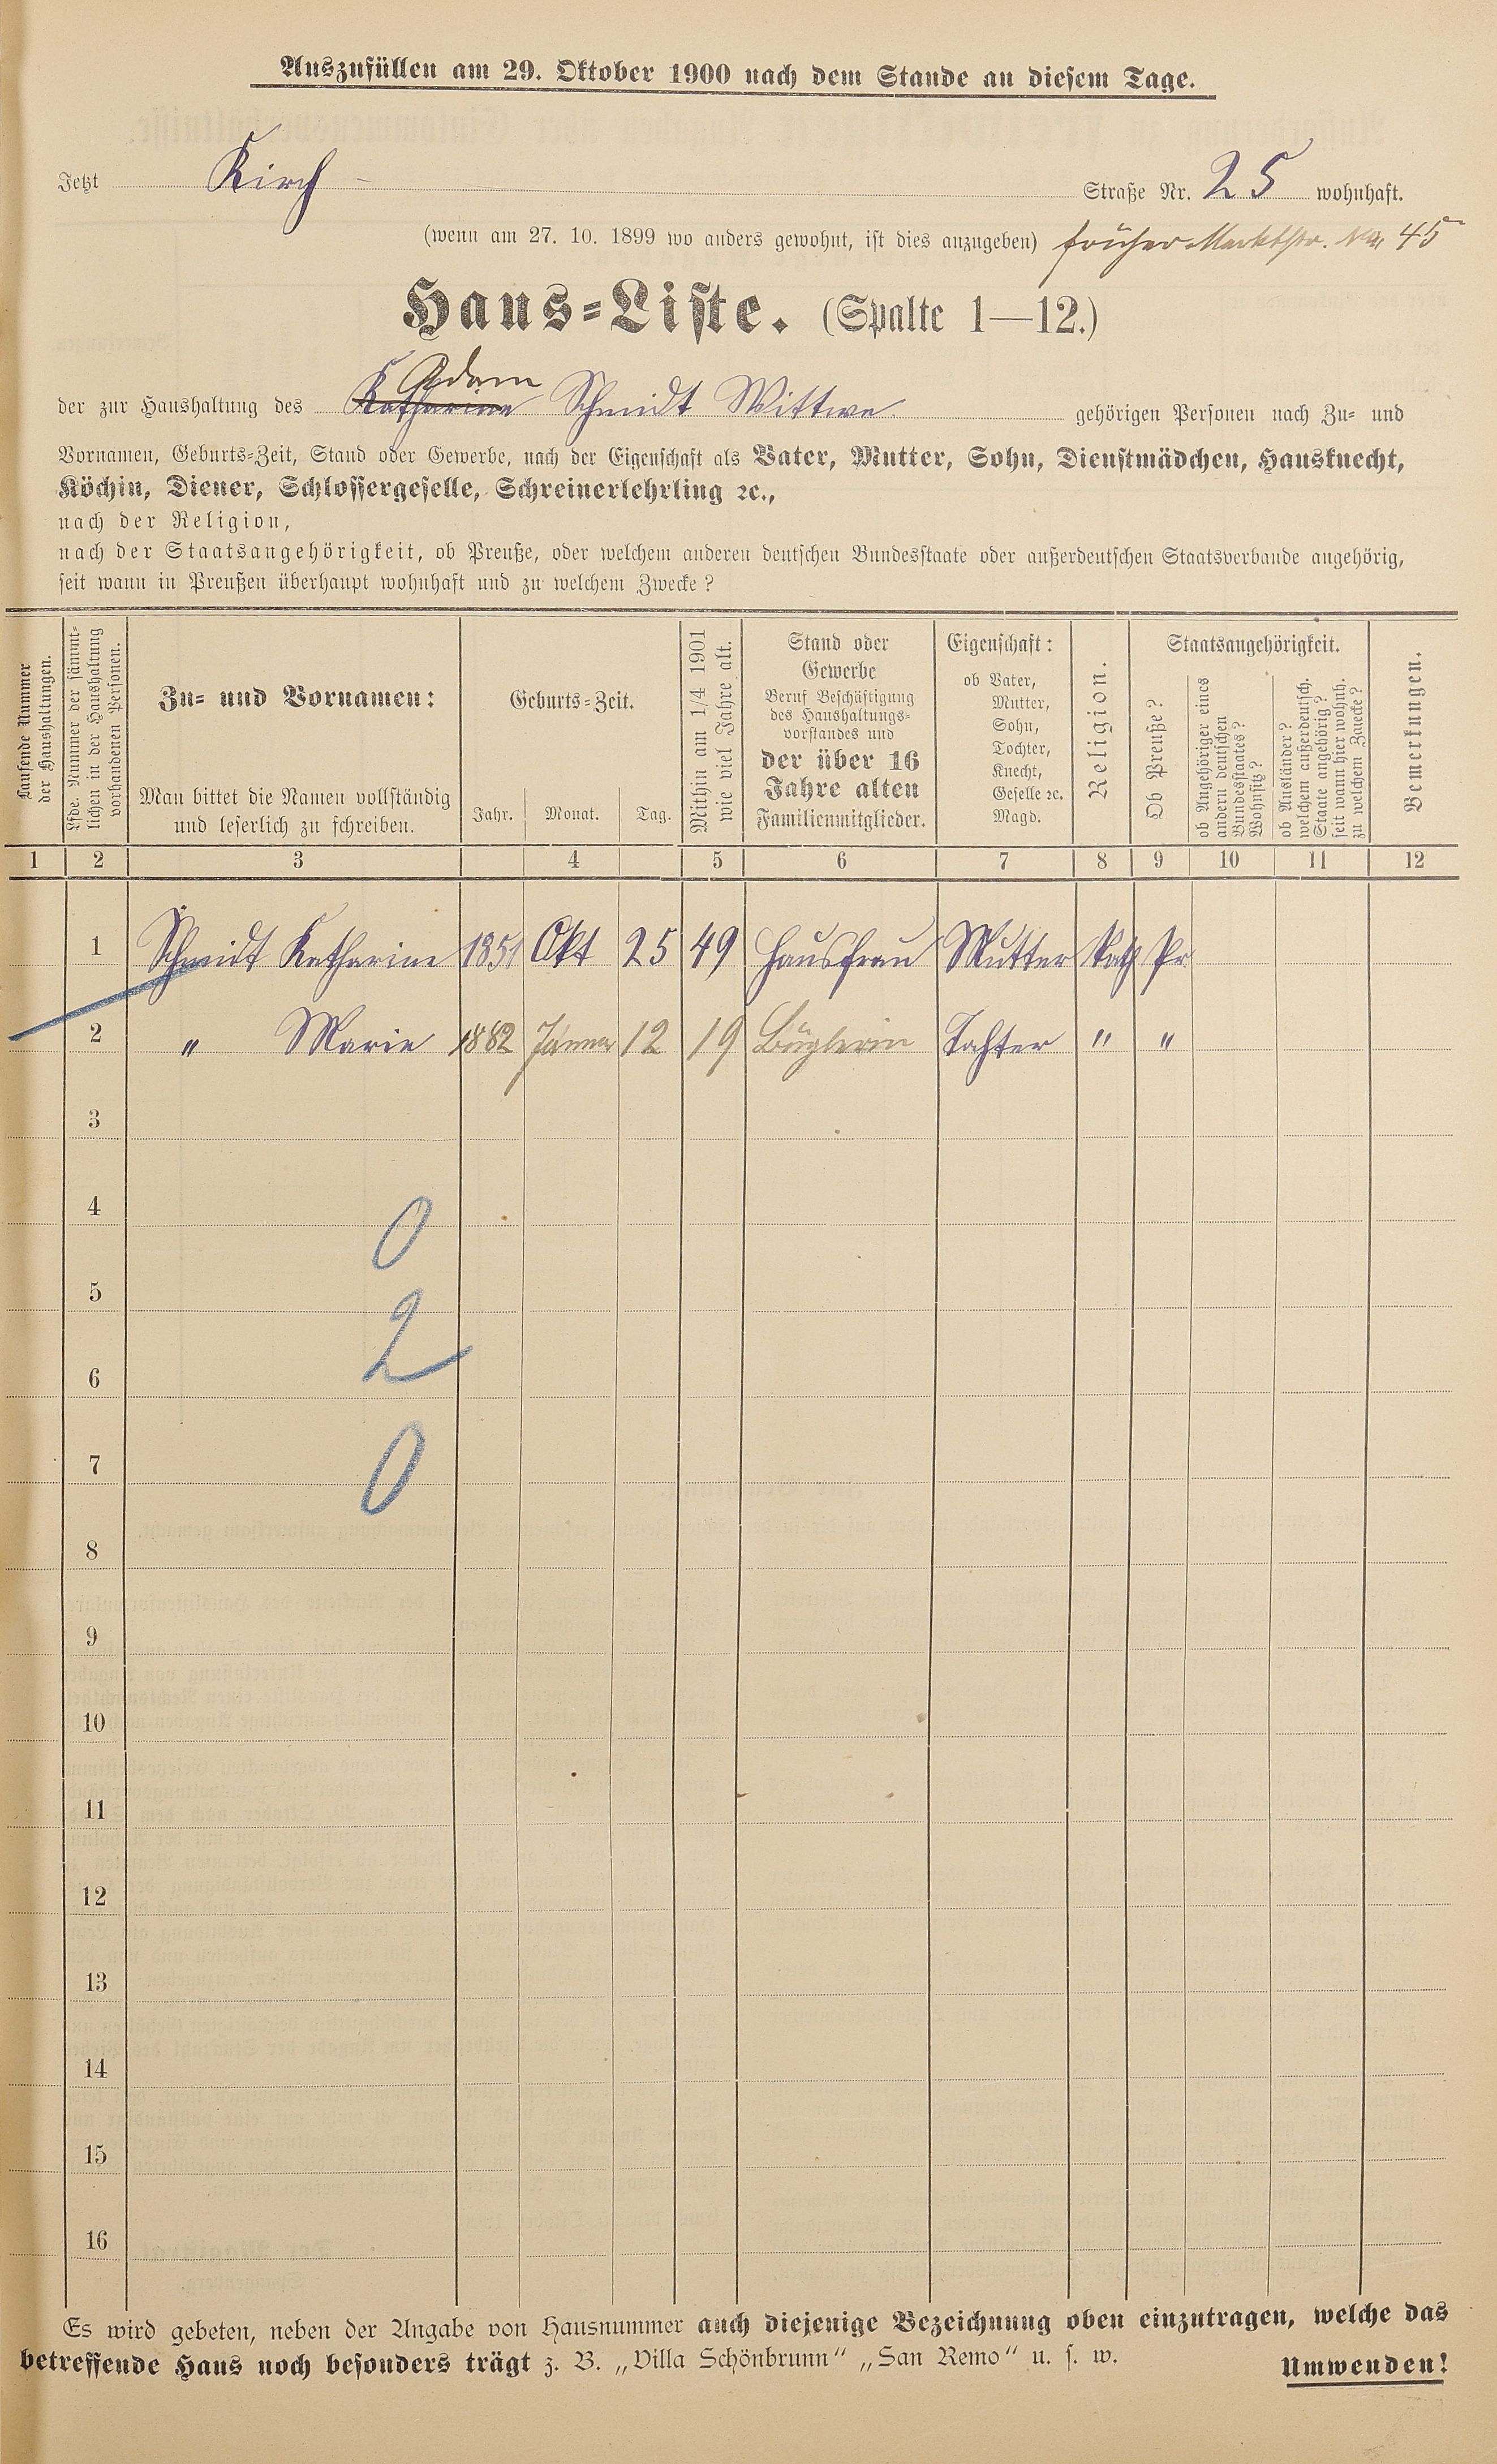 Auszufüllen am 29. Oktober 1900 nach dem Stande an diesem Tage.
Jetzt Kirch - Straße Nr. 25 wohnhaft.
(wenn am 27. 10. 1899 wo anders gewohnt, ist dies anzugeben) früher Marktstr. No. 45
Haus-Liste. (Spalte 1—12.)
Adam
der zur Haushaltung des Katharina Schmidt Wittwe gehörigen Personen nach Zu- und
Vornamen, Geburts-Zeit, Stand oder Gewerbe, nach der Eigenschaft als Vater, Mutter, Sohn, Dienstmädchen, Hausknecht,
Köchin, Diener, Schlossergeselle, Schreinerlehrling ꝛc.,
nach der Religion,
nach der Staatsangehörigkeit, ob Preuße, oder welchem anderen deutschen Bundesstaate oder außerdeutschen Staatsverbande angehörig,
seit wann in Preußen überhaupt wohnhaft und zu welchem Zwecke?
Laufende Nummer
der Haushaltungen.
Lfde. Nummer der sämmt-
lichen in der Haushaltung
vorhandenen Personen.
Zu- und Vornamen:
Man bittet die Namen vollständig
und leserlich zu schreiben.
Geburts-Zeit.
Jahr. Monat. Tag.
Mithin am 1/4 1901
wie viel Jahre alt.
Stand oder
Gewerbe
Beruf Beschäftigung
des Haushaltungs-
vorstandes und
der über 16
Jahre alten
Familienmitglieder.
Eigenschaft:
ob Vater,
Mutter,
Sohn,
Tochter,
Knecht,
Geselle ꝛc.
Magd.
Religion.
Staatsangehörigkeit.
Ob Preuße?
ob Angehöriger eines
andern deutschen
Bundesstaates?
Wohnsitz?
ob Ausländer?
welchem außerdeutsch.
Staate angehörig?
seit wann hier wohnh.
zu welchem Zwecke?
Bemerkungen.
1 2 3 4 5 6 7 8 9 10 11 12
1 Schmidt Katharina 1851 Okt 25 49 Hausfrau Mutter Kath Pr
2 " Marie 1882 Januar 12 19 Büglerin Tochter " "
3
4
0
5
2
6
7
0
8
9
10
11
12
13
14
15
16
Es wird gebeten, neben der Angabe von Hausnummer auch diejenige Bezeichnung oben einzutragen, welche das
betreffende Haus noch besonders trägt z. B. „Villa Schönbrunn“ „San Remo“ u. s. w.
Umwenden!